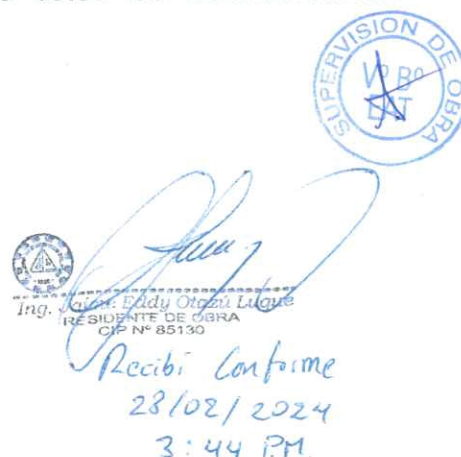 SUPERVISION DE OBRA
Vº Bº
Ing. Jaime Eddy Otazú Luque
RESIDENTE DE OBRA
CIP Nº 85130
Recibi Conforme
28/02/2024
3:44 P.M.